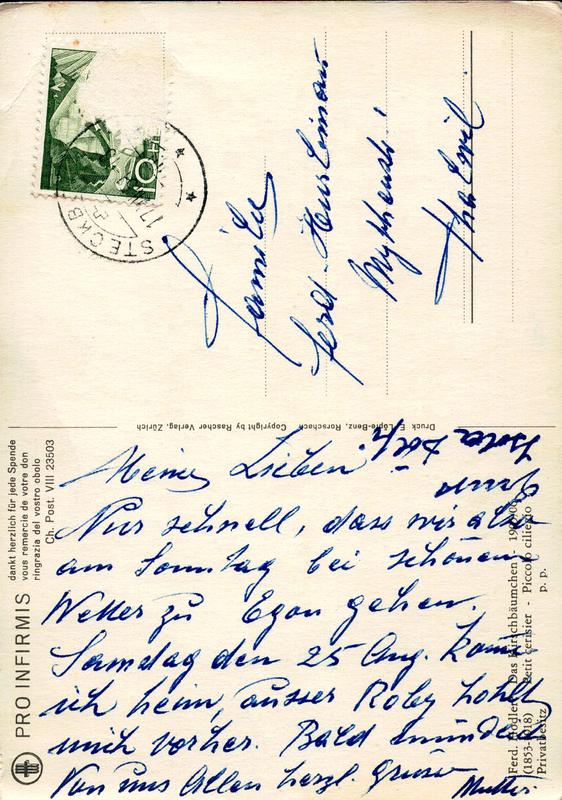 Meine Lieben!
Nur schnell, dass wir also
am Sonntag bei schönem
Wetter zu Egon gehen.
Samstag den 25 Aug. komm
ich heim, ausser Roby hohlt
mich vorher. Bald mündlich
Von uns Allen herzl. Grüsse
Mutter.
Familie
Ferd. Hürlimann
Mythenstr.
Thalwil
STECKB
10
PRO INFIRMIS
dankt herzlich für jede Spende
vous remercie de votre don
ringrazia del vostro obolo
Ch. Post. VIII 23503
Druck E. Löpfe-Benz, Rorschach Copyright by Rascher Verlag, Zürich
Ferd. Hodler Das Kirschbäumchen
(1853-1918) Petit cerisier - Piccolo ciliegio
Privatbesitz p. p.